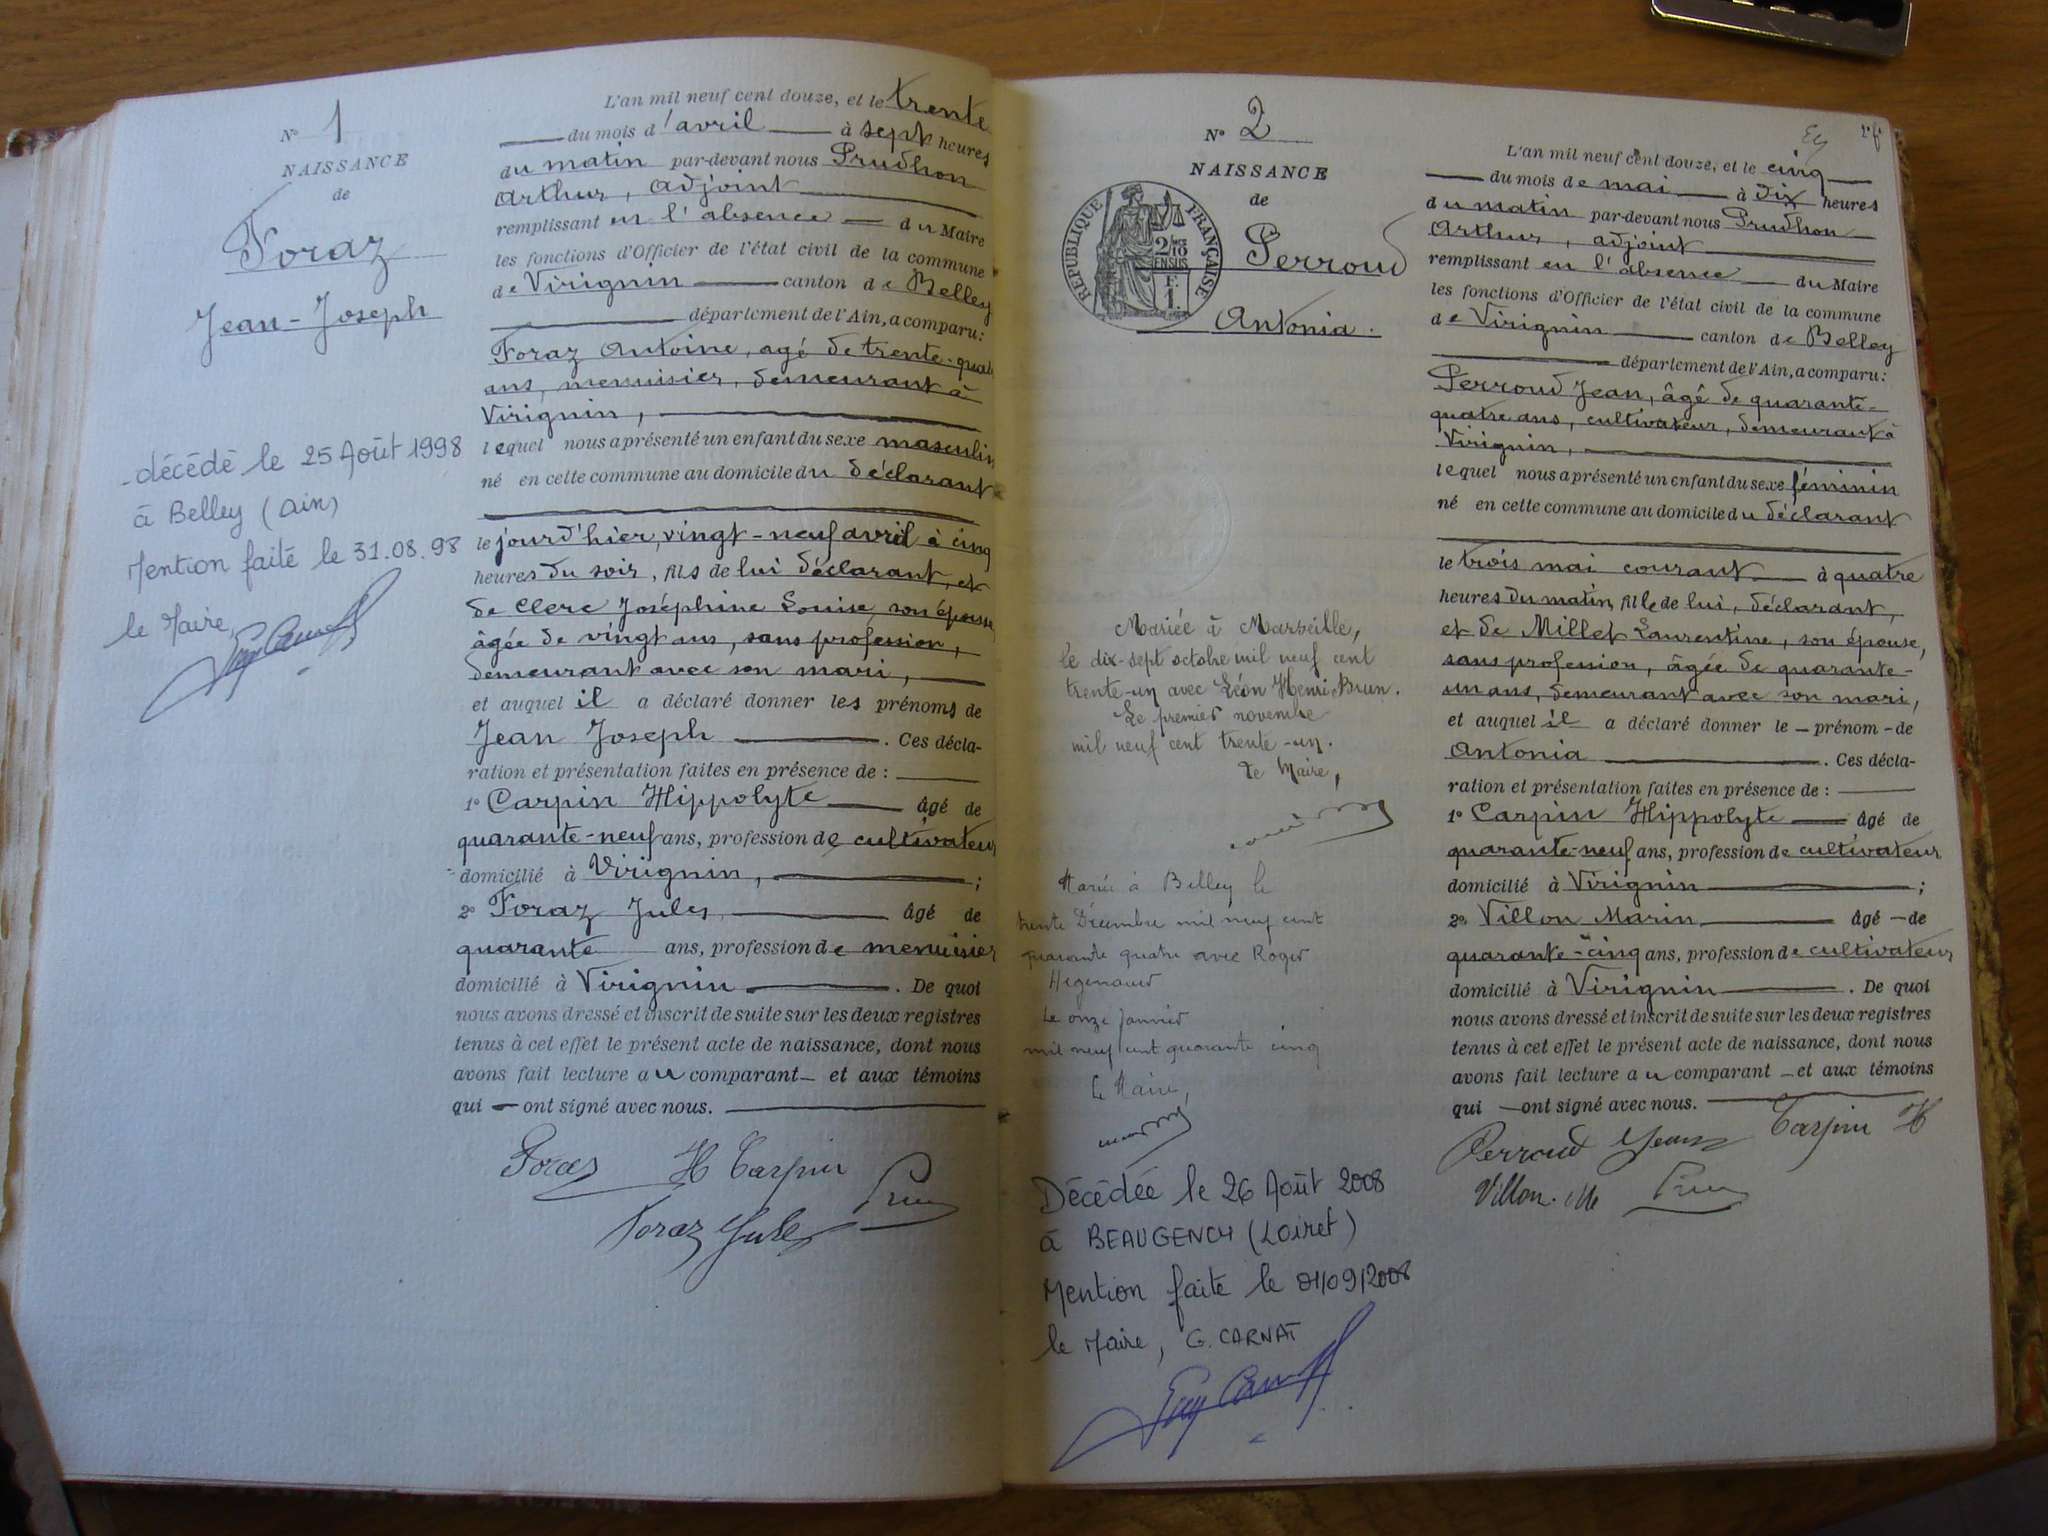 N° 1
NAISSANCE
de
Foraz
Jean-Joseph
décédé le 25 Août 1998
à Belley (Ain)
Mention faite le 31.08.98
le Maire,
L'an mil neuf cent douze, et le trente
du mois d'avril à sept heures
du matin par-devant nous Prudhon
Arthur, adjoint
remplissant en l'absence du Maire
les fonctions d'Officier de l'état civil de la commune
de Virignin canton de Belley
département de l'Ain, a comparu:
Foraz Antoine, agé de trente-quatre
ans, menuisier, demeurant à
Virignin,
lequel nous a présenté un enfant du sexe masculin
né en cette commune au domicile du déclarant
le jourd'hier, vingt-neuf avril à cinq
heures du soir, fils de lui déclarant, et
de Clerc Joséphine Louise, son épouse
âgée de vingt ans, sans profession,
demeurant avec son mari,
et auquel il a déclaré donner les prénoms de
Jean Joseph . Ces décla-
ration et présentation faites en présence de :
1° Carpin Hippolyte âgé de
quarante-neuf ans, profession de cultivateur
domicilié à Virignin, ;
2° Foraz Jules, âgé de
quarante ans, profession de menuisier
domicilié à Virignin . De quoi
nous avons dressé et inscrit de suite sur les deux registres
tenus à cet effet le présent acte de naissance, dont nous
avons fait lecture au comparant et aux témoins
qui ont signé avec nous.
Foraz H Carpin
Foraz Jules
N° 2
NAISSANCE
de
RÉPUBLIQUE FRANÇAISE
Perroud
Antonia.
Mariée à Marseille,
le dix-sept octobre mil neuf cent
trente-un avec Léon Henri Brun.
Le premier novembre
mil neuf cent trente-un.
Le Maire,
Mariée à Belley le
trente Décembre mil neuf cent
quarante quatre avec Roger
Le onze janvier
mil neuf cent quarante cinq
Le Maire,
Décédée le 26 Août 2008
à BEAUGENCY (Loiret)
Mention faite le 01/09/2008
le Maire, G. CARNAT
L'an mil neuf cent douze, et le cinq
du mois de mai à dix heures
du matin par-devant nous Prudhon
Arthur, adjoint
remplissant en l'absence du Maire
les fonctions d'Officier de l'état civil de la commune
de Virignin canton de Belley
département de l'Ain, a comparu:
Perroud Jean, âgé de quarante-
quatre ans, cultivateur, demeurant à
Virignin,
lequel nous a présenté un enfant du sexe féminin
né en cette commune au domicile du déclarant
le trois mai courant à quatre
heures du matin, fille de lui, déclarant,
et de Millet Laurentine, son épouse,
sans profession, âgée de quarante-
un ans, demeurant avec son mari,
et auquel il a déclaré donner le prénom de
Antonia . Ces décla-
ration et présentation faites en présence de :
1° Carpin Hippolyte âgé de
quarante-neuf ans, profession de cultivateur
domicilié à Virignin ;
2° Villon Marin âgé de
quarante-cinq ans, profession de cultivateur
domicilié à Virignin . De quoi
nous avons dressé et inscrit de suite sur les deux registres
tenus à cet effet le présent acte de naissance, dont nous
avons fait lecture au comparant et aux témoins
qui ont signé avec nous.
Perroud Jean Carpin H
Villon